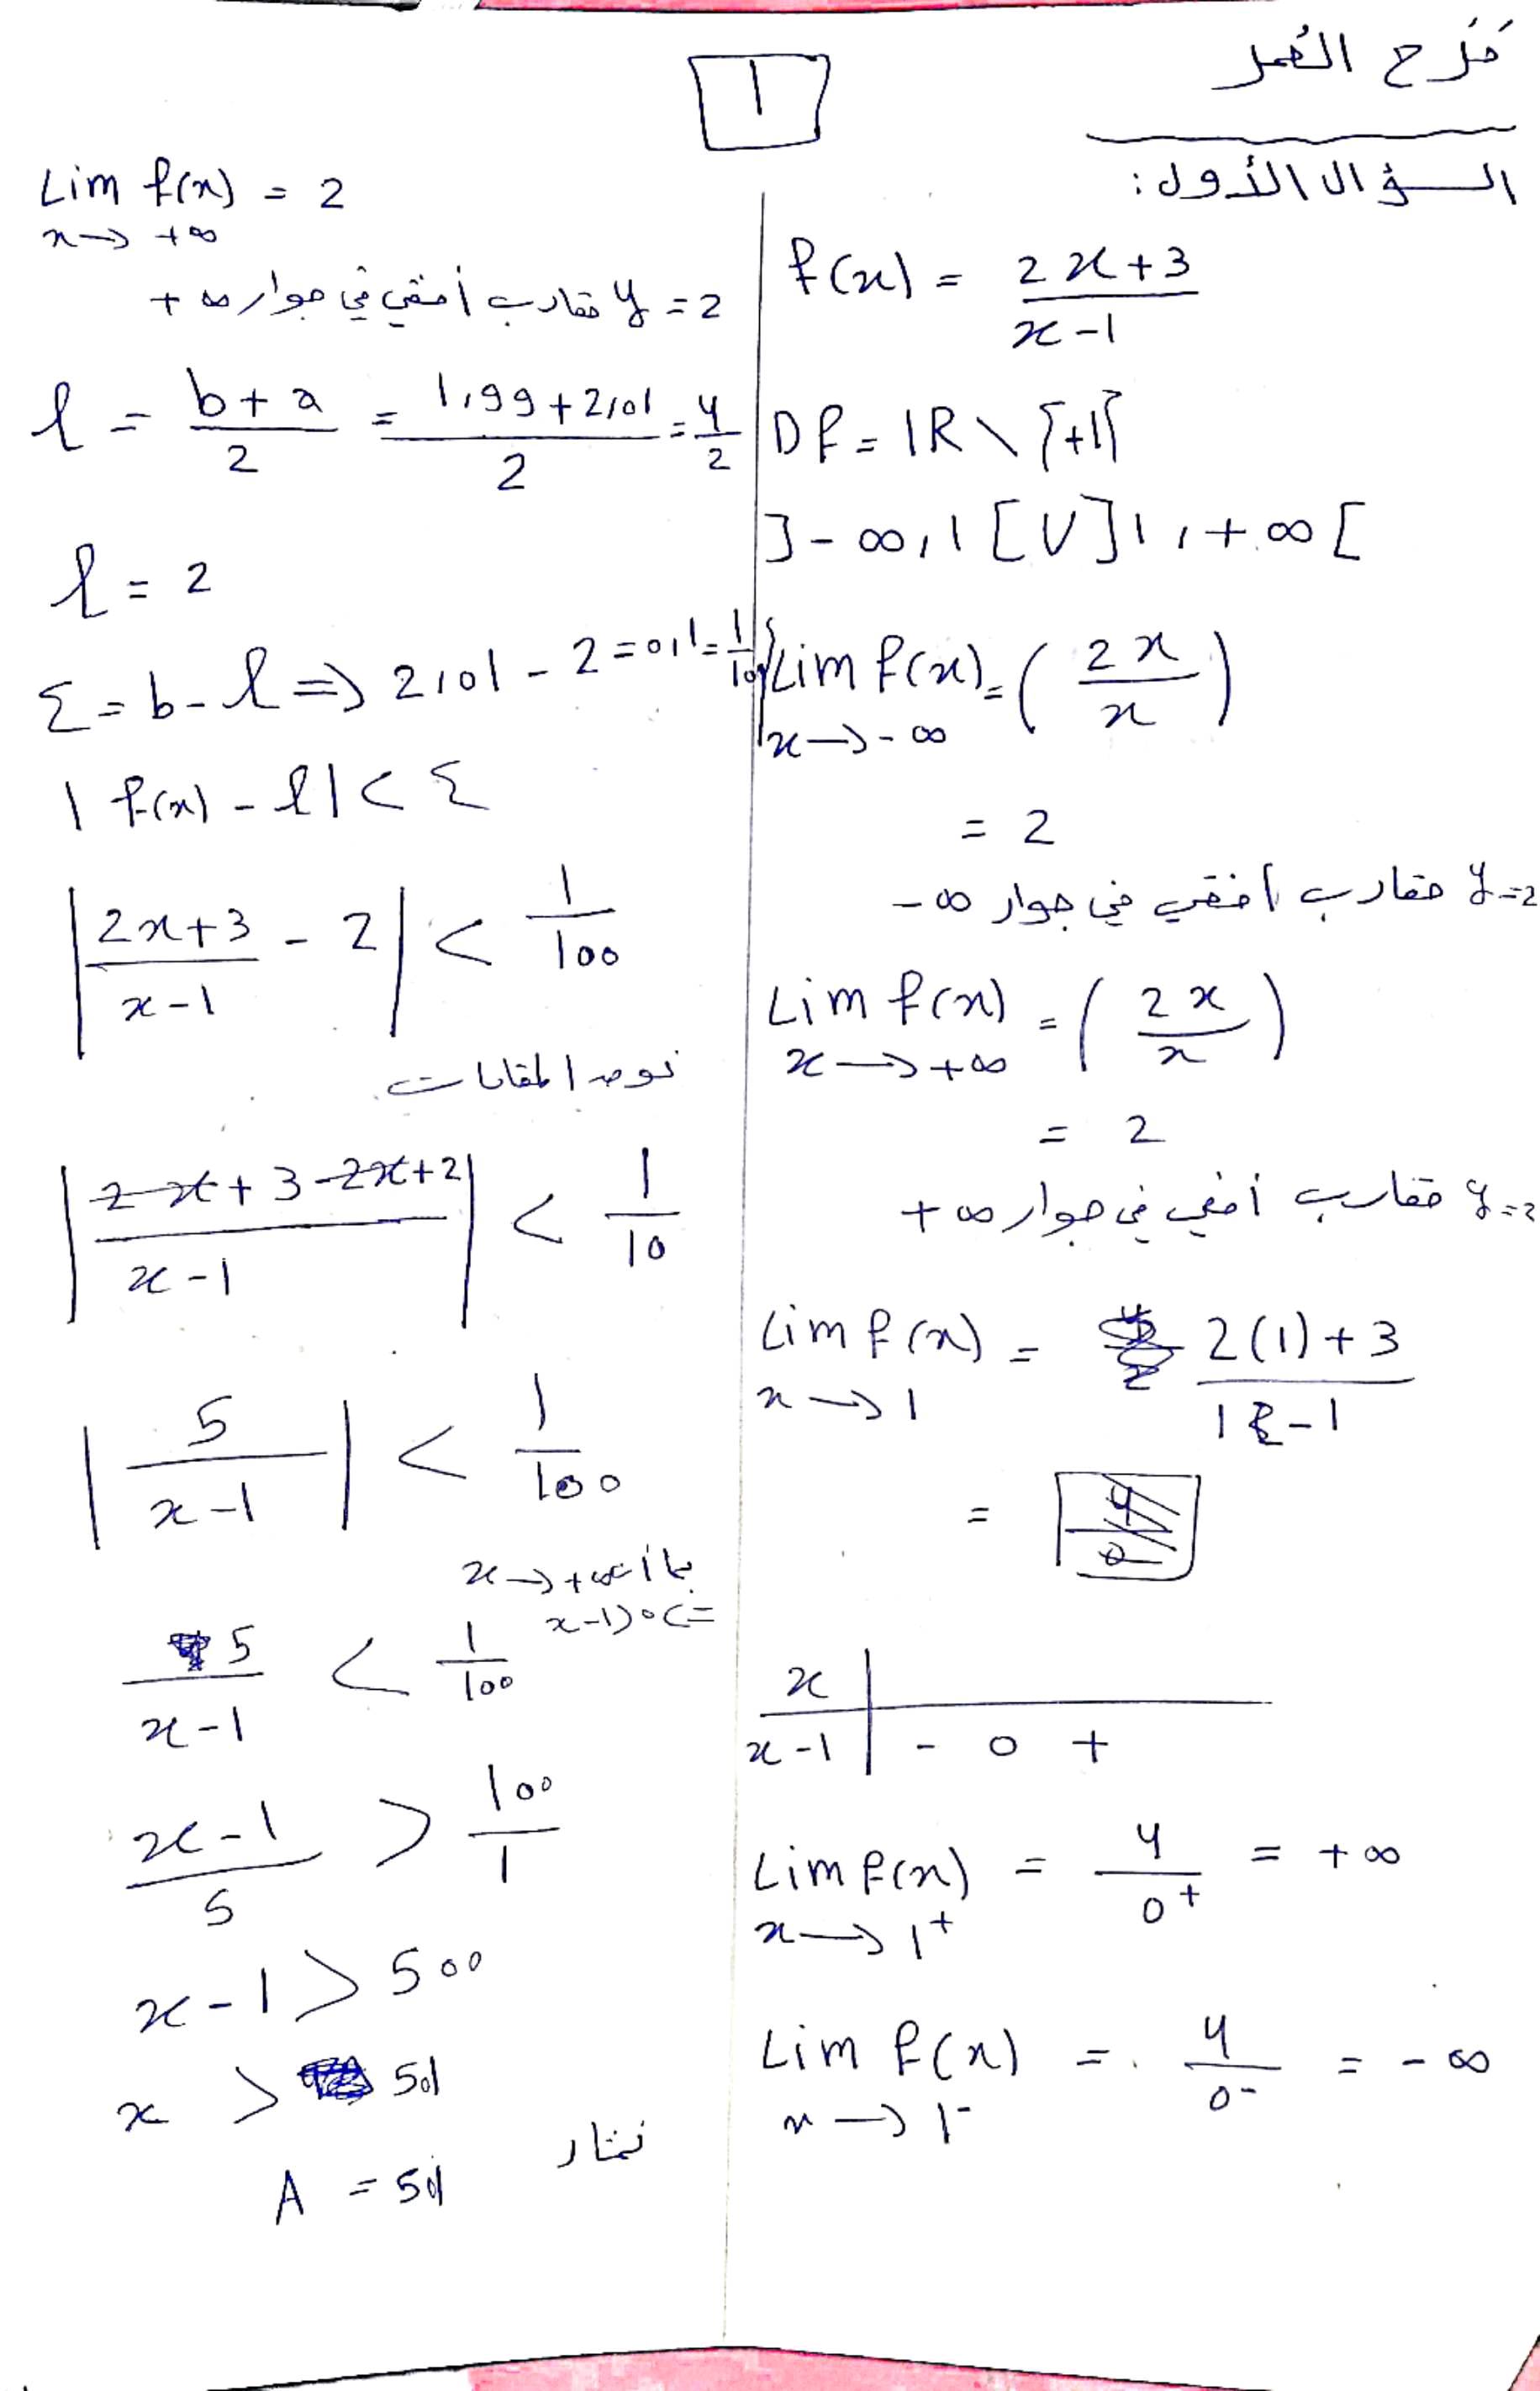 فرح العمر
1
السؤال الأول:
f(x) = \frac{2x+3}{x-1}
Df = IR \ {+1}
]-∞, 1[ U ]1, +∞[
Lim f(x) = ( \frac{2x}{x} )
x → -∞
= 2
y=2 مقارب أفقي في جوار -∞
Lim f(x) = ( \frac{2x}{x} )
x → +∞
= 2
y=2 مقارب أفقي في جوار +∞
Lim f(x) = \frac{2(1)+3}{1-1}
x → 1
=
x
x-1 | - 0 +
Lim f(x) = \frac{4}{0+} = +∞
x → 1+
Lim f(x) = \frac{4}{0-} = -∞
x → 1-
Lim f(x) = 2
x → +∞
y=2 مقارب أفقي في جوار +∞
l = \frac{b+a}{2} = \frac{1,99+2,01}{2} = \frac{4}{2}
l = 2
ε = b-l ⇒ 2,01 - 2 = 0,1 = \frac{1}{100}
| f(x) - l | < ε
| \frac{2x+3}{x-1} - 2 | < \frac{1}{100}
نوحد المقامات
| \frac{2x+3-2x+2}{x-1} | < \frac{1}{10}
| \frac{5}{x-1} | < \frac{1}{100}
بما أن x → +∞
x-1>0 <=
\frac{5}{x-1} < \frac{1}{100}
\frac{x-1}{5} > \frac{100}{1}
x-1 > 500
x > 501
نختار
A = 501